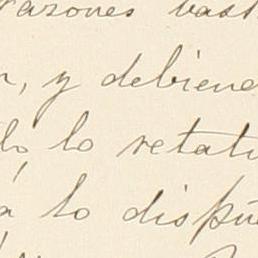 razones bast
n, y debiend
lo, lo retati
á lo dispu